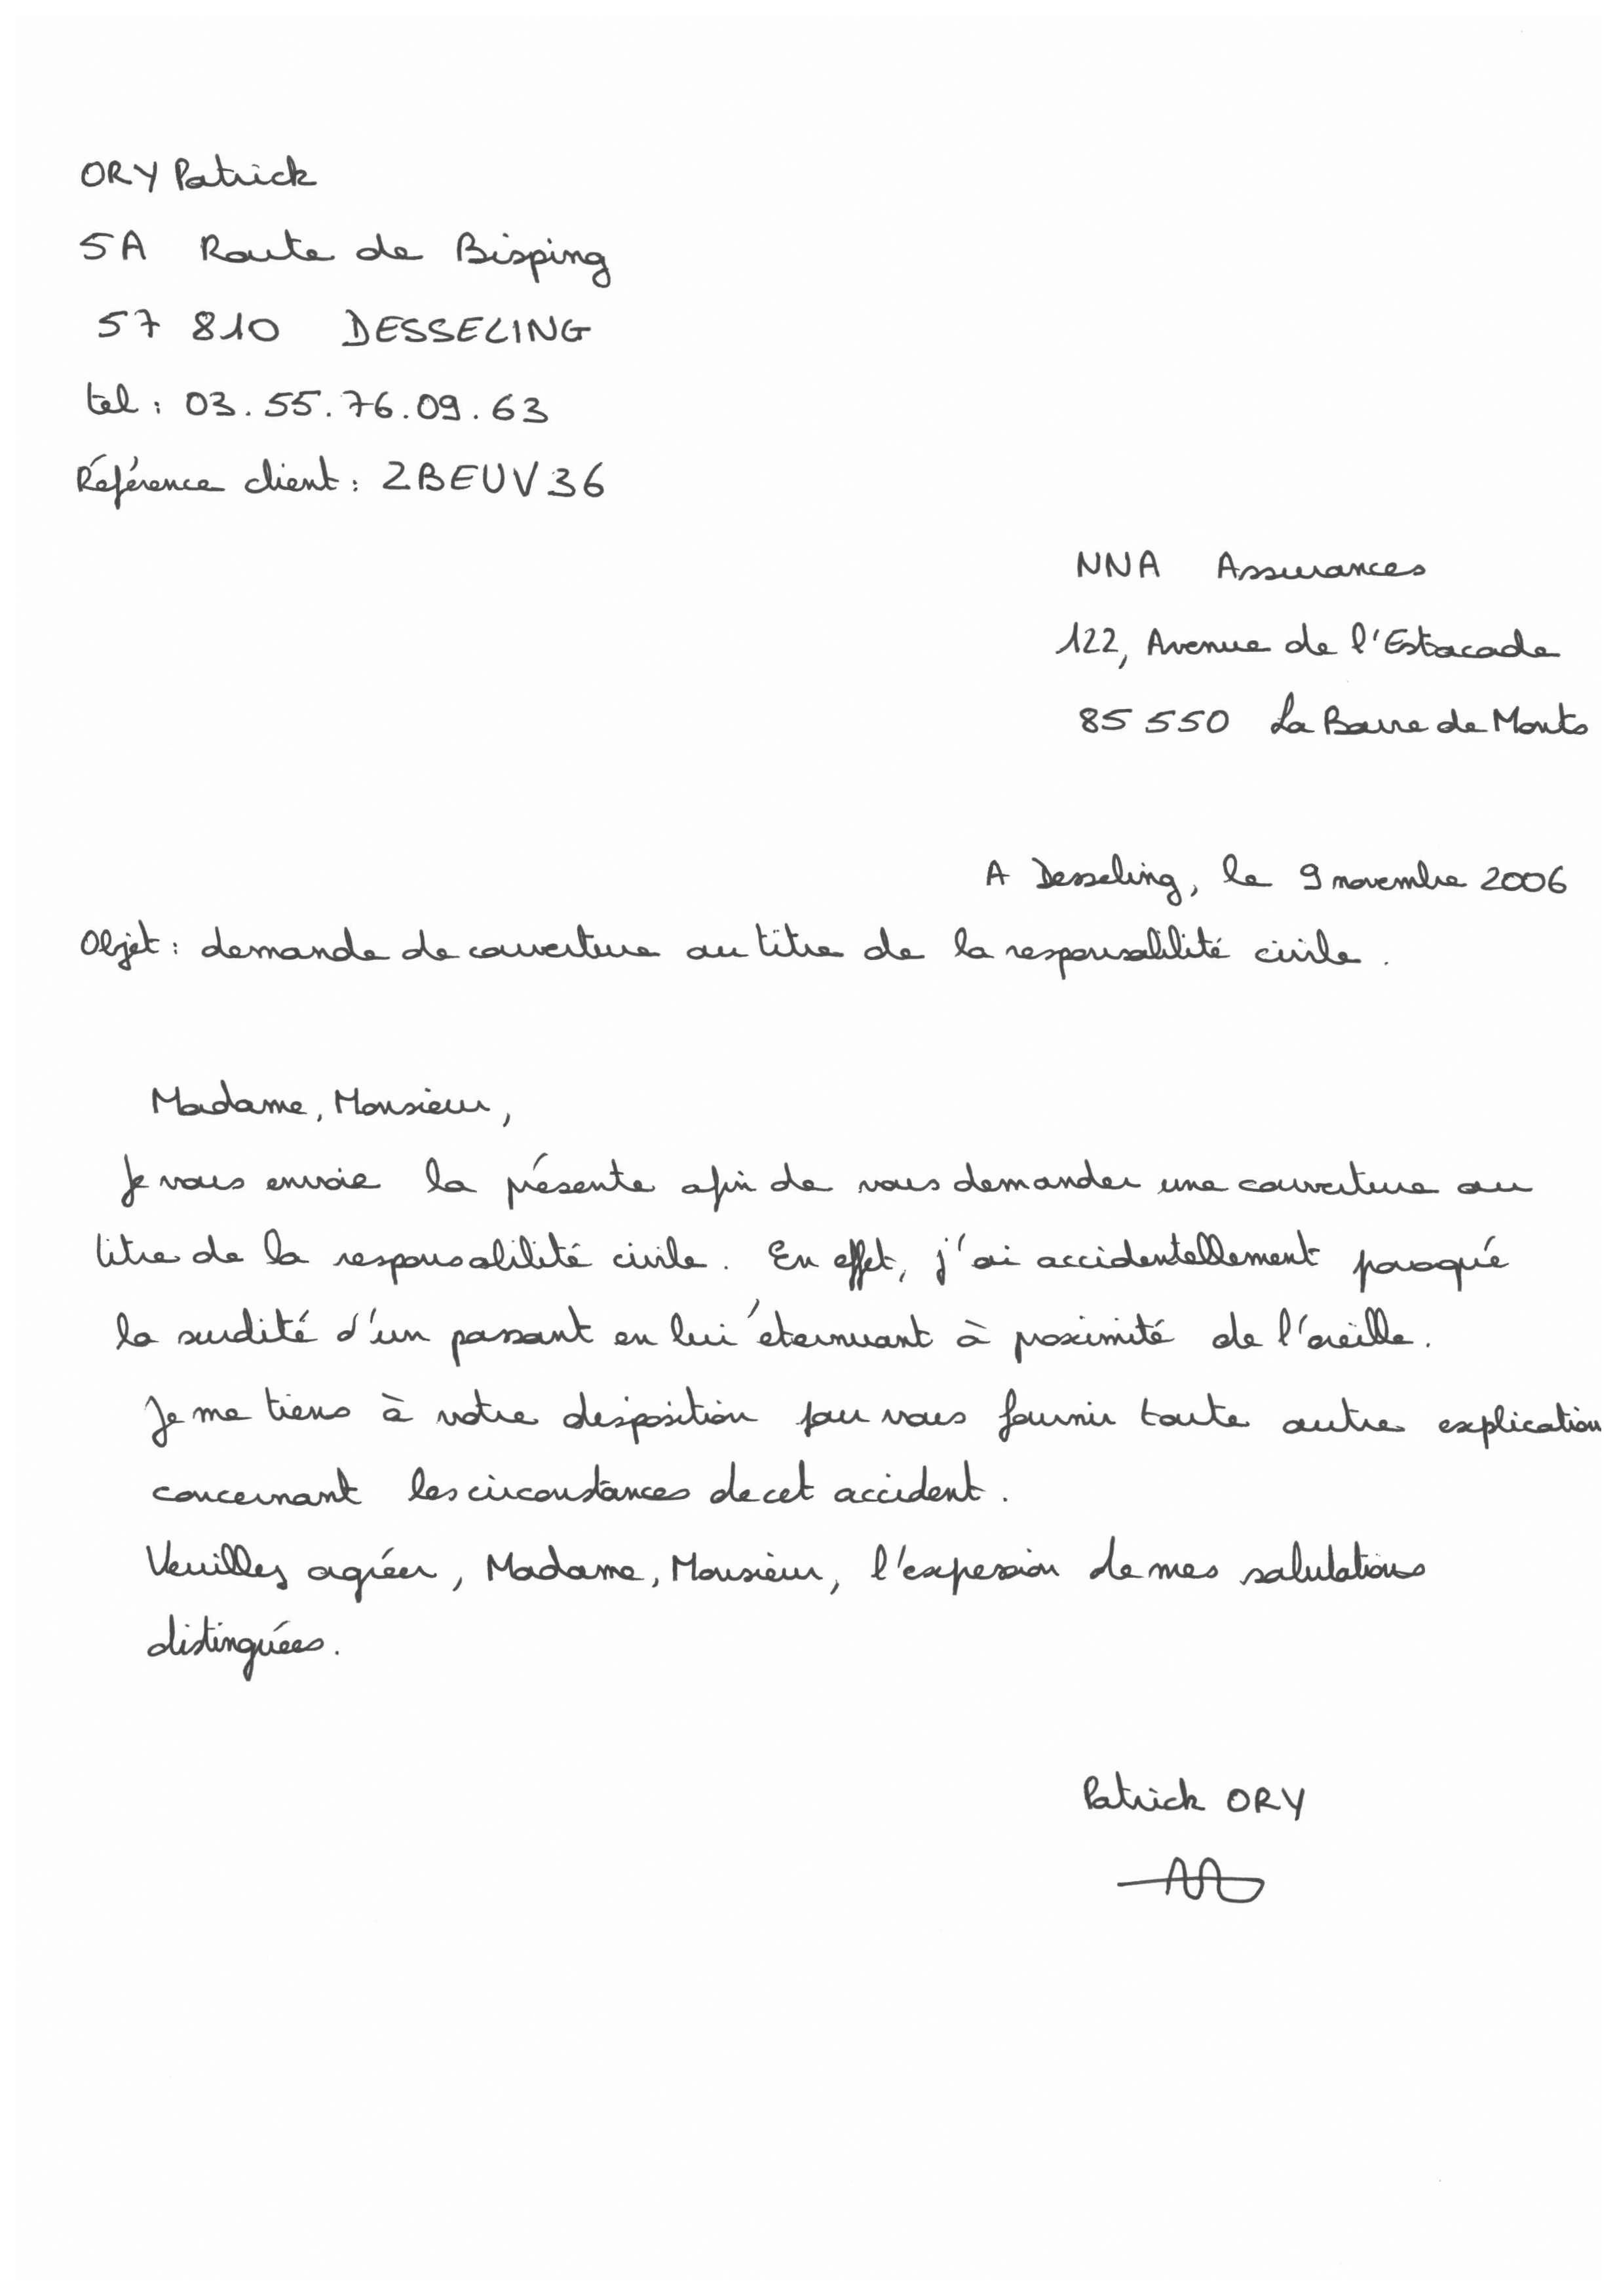 ORY Patrick
5A Route de Bisping
57 810 DESSELING
tel : 03.55.76.09.63
Référence client : 2BEUV36
NNA Assurances
122, Avenue de l'Estacade
85 550 La Barre de Monts
A Desseling, le 9 novembre 2006
Objet : demande de couverture au titre de la responsabilité civile.
Madame, Monsieur,
Je vous envoie la présente afin de vous demander une couverture au
titre de la responsabilité civile. En effet, j'ai accidentellement provoqué
la surdité d'un passant en lui éternuant à proximité de l'oreille.
Je me tiens à votre disposition pour vous fournir toute autre explication
concernant les circonstances de cet accident.
Veuillez agréer, Madame, Monsieur, l'expression de mes salutations
distinguées.
Patrick ORY